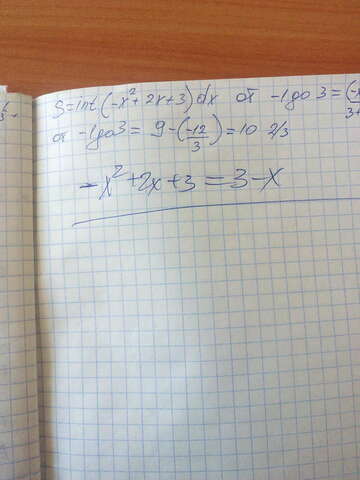 S=int(-x²+2x+3)dx от -1 до 3 = (-x
3+
от -1 до 3 = 9-(-12/3)=10 2/3
-x²+2x+3=3-x